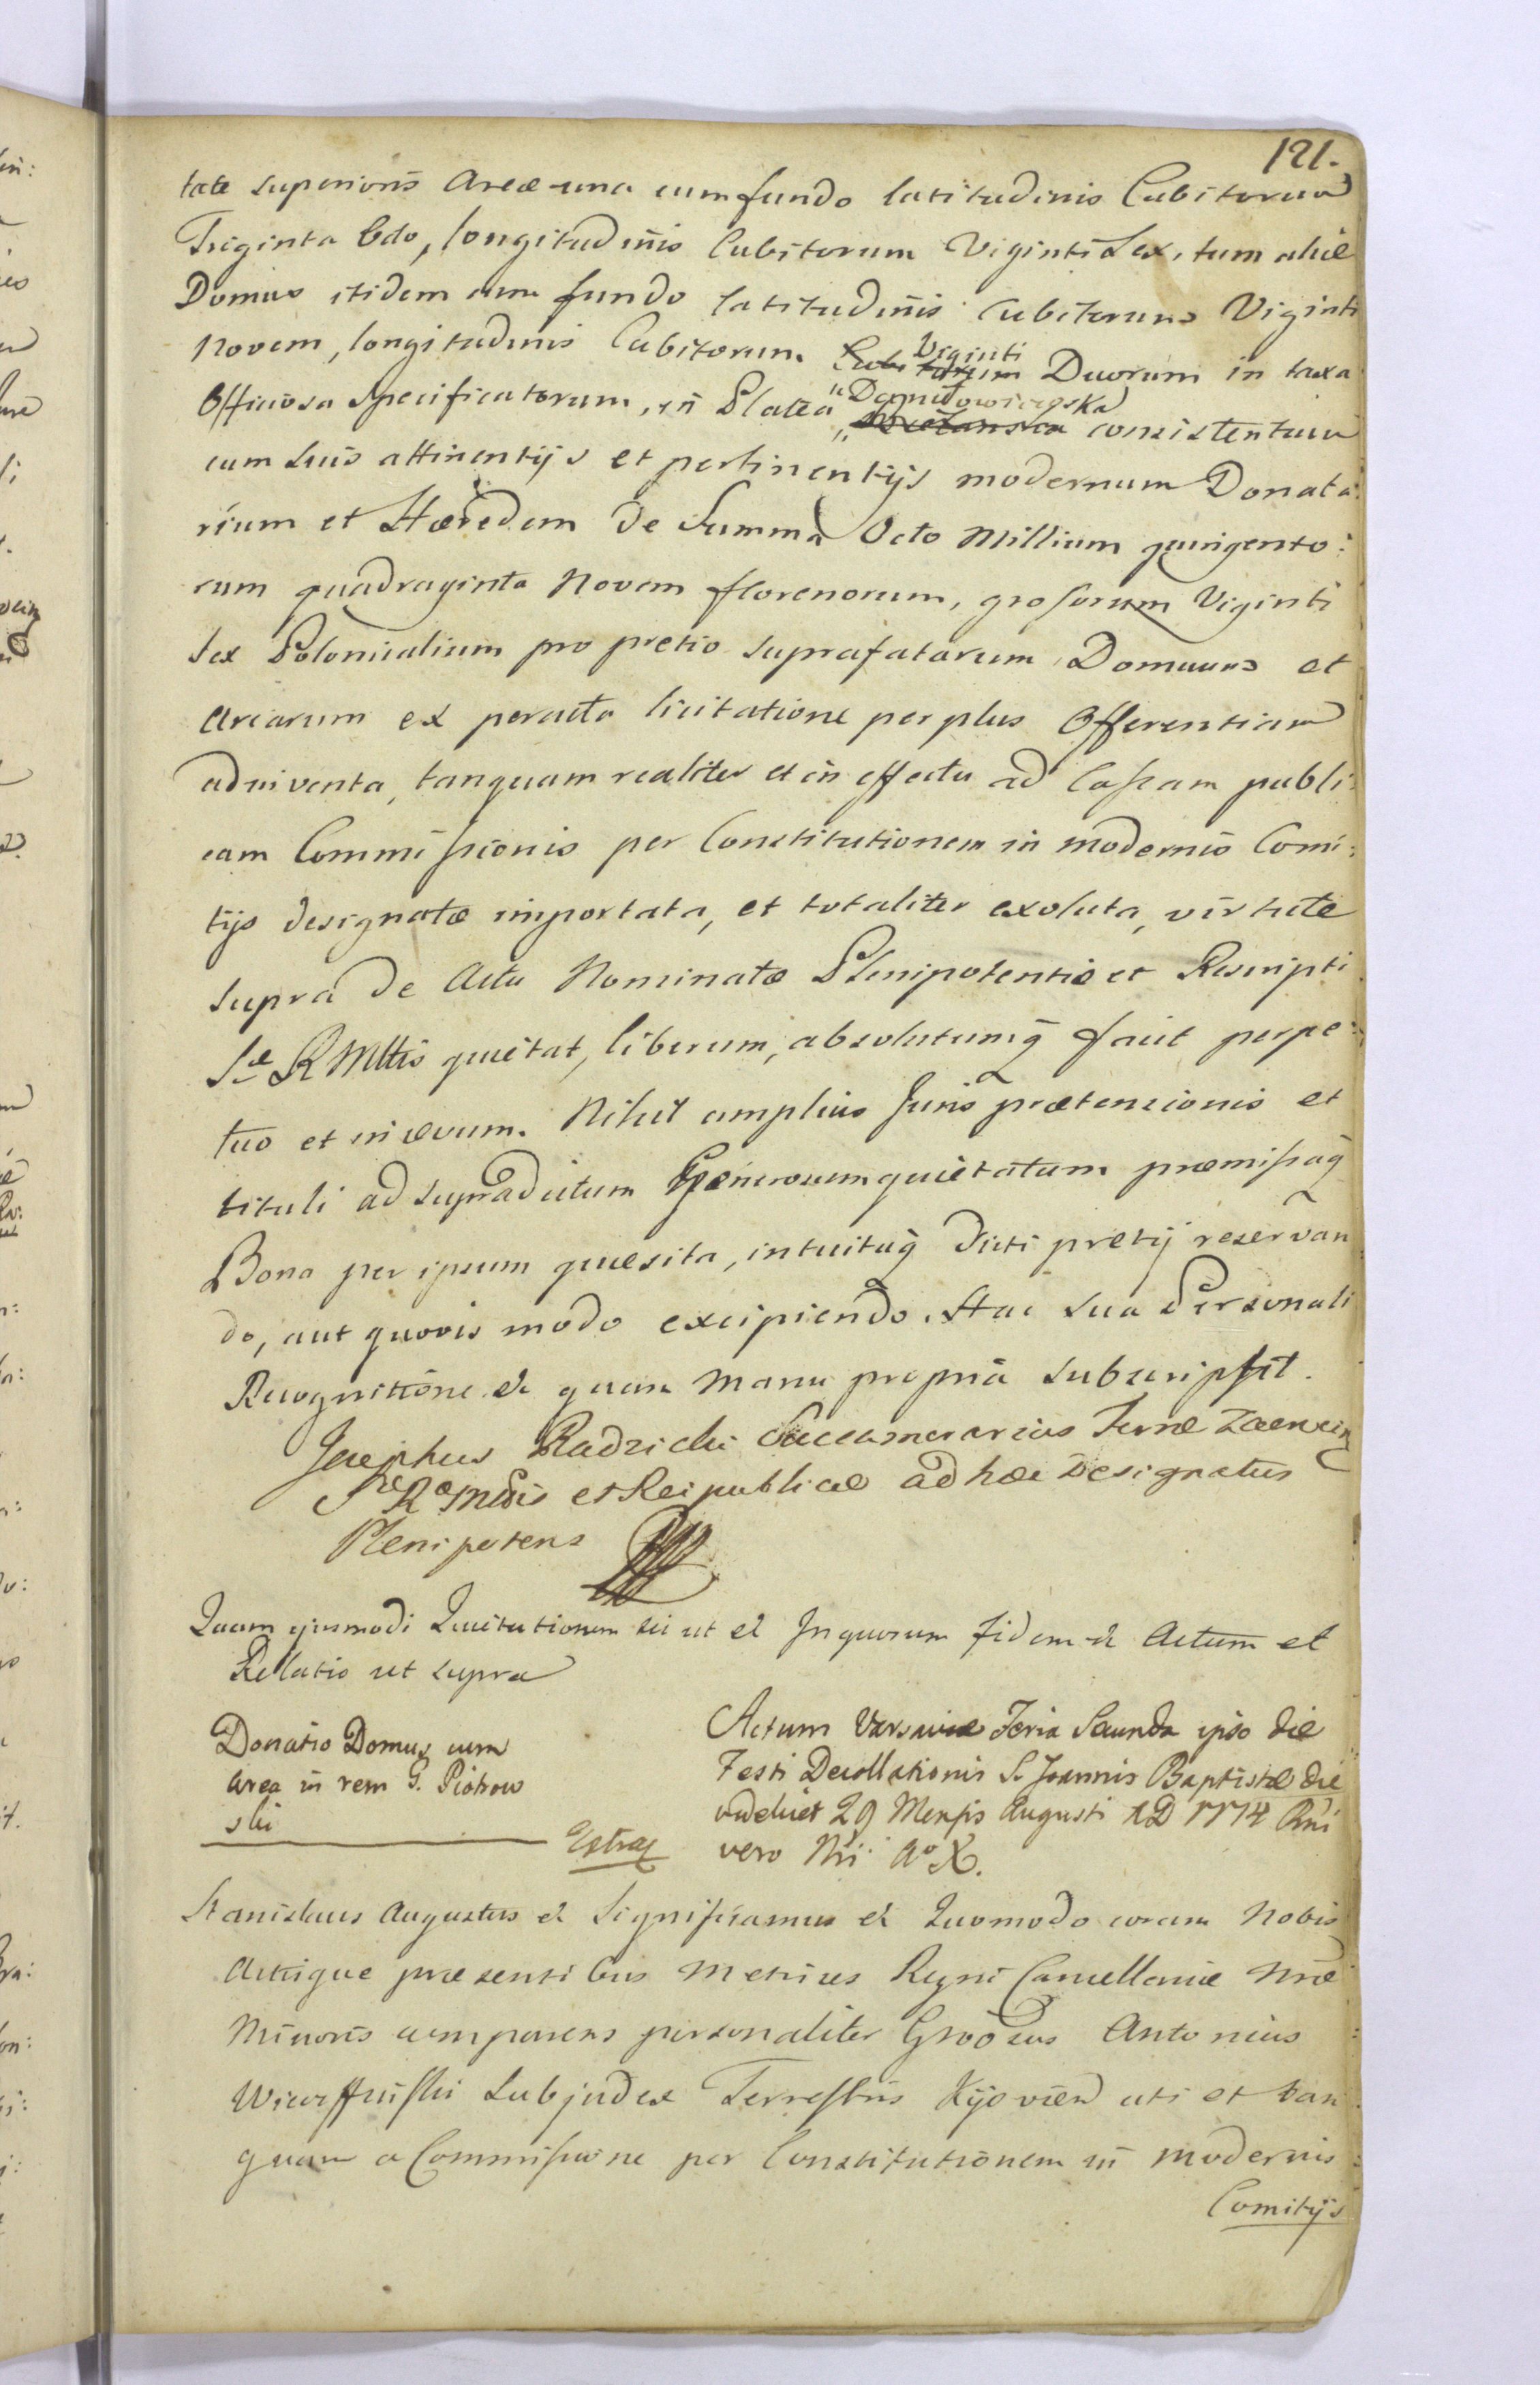 121.
tate superioris Areæ una cum fundo latitudinis Cubitorum
Triginta Octo, longitudinis Cubitorum Viginti Sex, tum aliæ
Domus itidem cum fundo latitudinis Cubitorum Viginti
Novem, longitudinis Cubitorum Viginti Duorum in taxa
Officiosa Specificatorum, in Platea "Daniłowiczoska consistentium
cum suis attinentijs et pertinentijs modernum Donata:
rium et Hæredem de Summa Octo Millium quingento:
rum quadraginta Novem florenorum, grossorum Viginti
sex Polonicalium pro pretio suprafatarum Domuum et
Arearum ex peracta licitatione per plus Offerentiam
adinventa, tanquam realiter et in effectu ad Cassam publi:
cam Commissionis per Constitutionem in modernis Comi:
tijs designatæ importata, et totaliter exoluta, virtute
supra de Actu Nominatæ Plenipotentiæ et Rescripti
Sæ R Mttis quietat, liberum, absolutumq facit perpe:
tuo et in ævum. Nihil amplius Juris prætensionis et
tituli ad supradictum Generosum quietatum præmissaq
Bona per ipsum quæsita, intuituq dicti pretij reservan
do, aut quovis modo excipiendo. Hac sua Personali
Recognitione et quam Manu propria subscripsit.
Josephus Radzicki Succamerarius Terræ Zacrocen
Sæ Ræ Mttis et Reipublicæ ad hæc Designatus
Plenipotens
Quam ejusmodi Quietationem sic ut et Inquorum fidem et Actum et
Relatio ut supra
Donatio Domus cum
area in rem G. Piotrow
ski
Extrax
Actum Varsaviæ Feria Secunda ipso die
Festi Decollationis S. Joannis Baptistæ die
videlicet 29 Mensis Augusti AD 1774 Rni
vero Nri Ao X.
Stanislaus Augustus et Significamus et Quomodo coram Nobis
Actisque præsentibus Metrices Regni Cancellariæ Nræ
Minoris comparens personaliter Gnosus Antonius
Subjudex Terrestris Kijovien uti et tan
quam a Commissione per Constitutionem in modernis
Comitijs